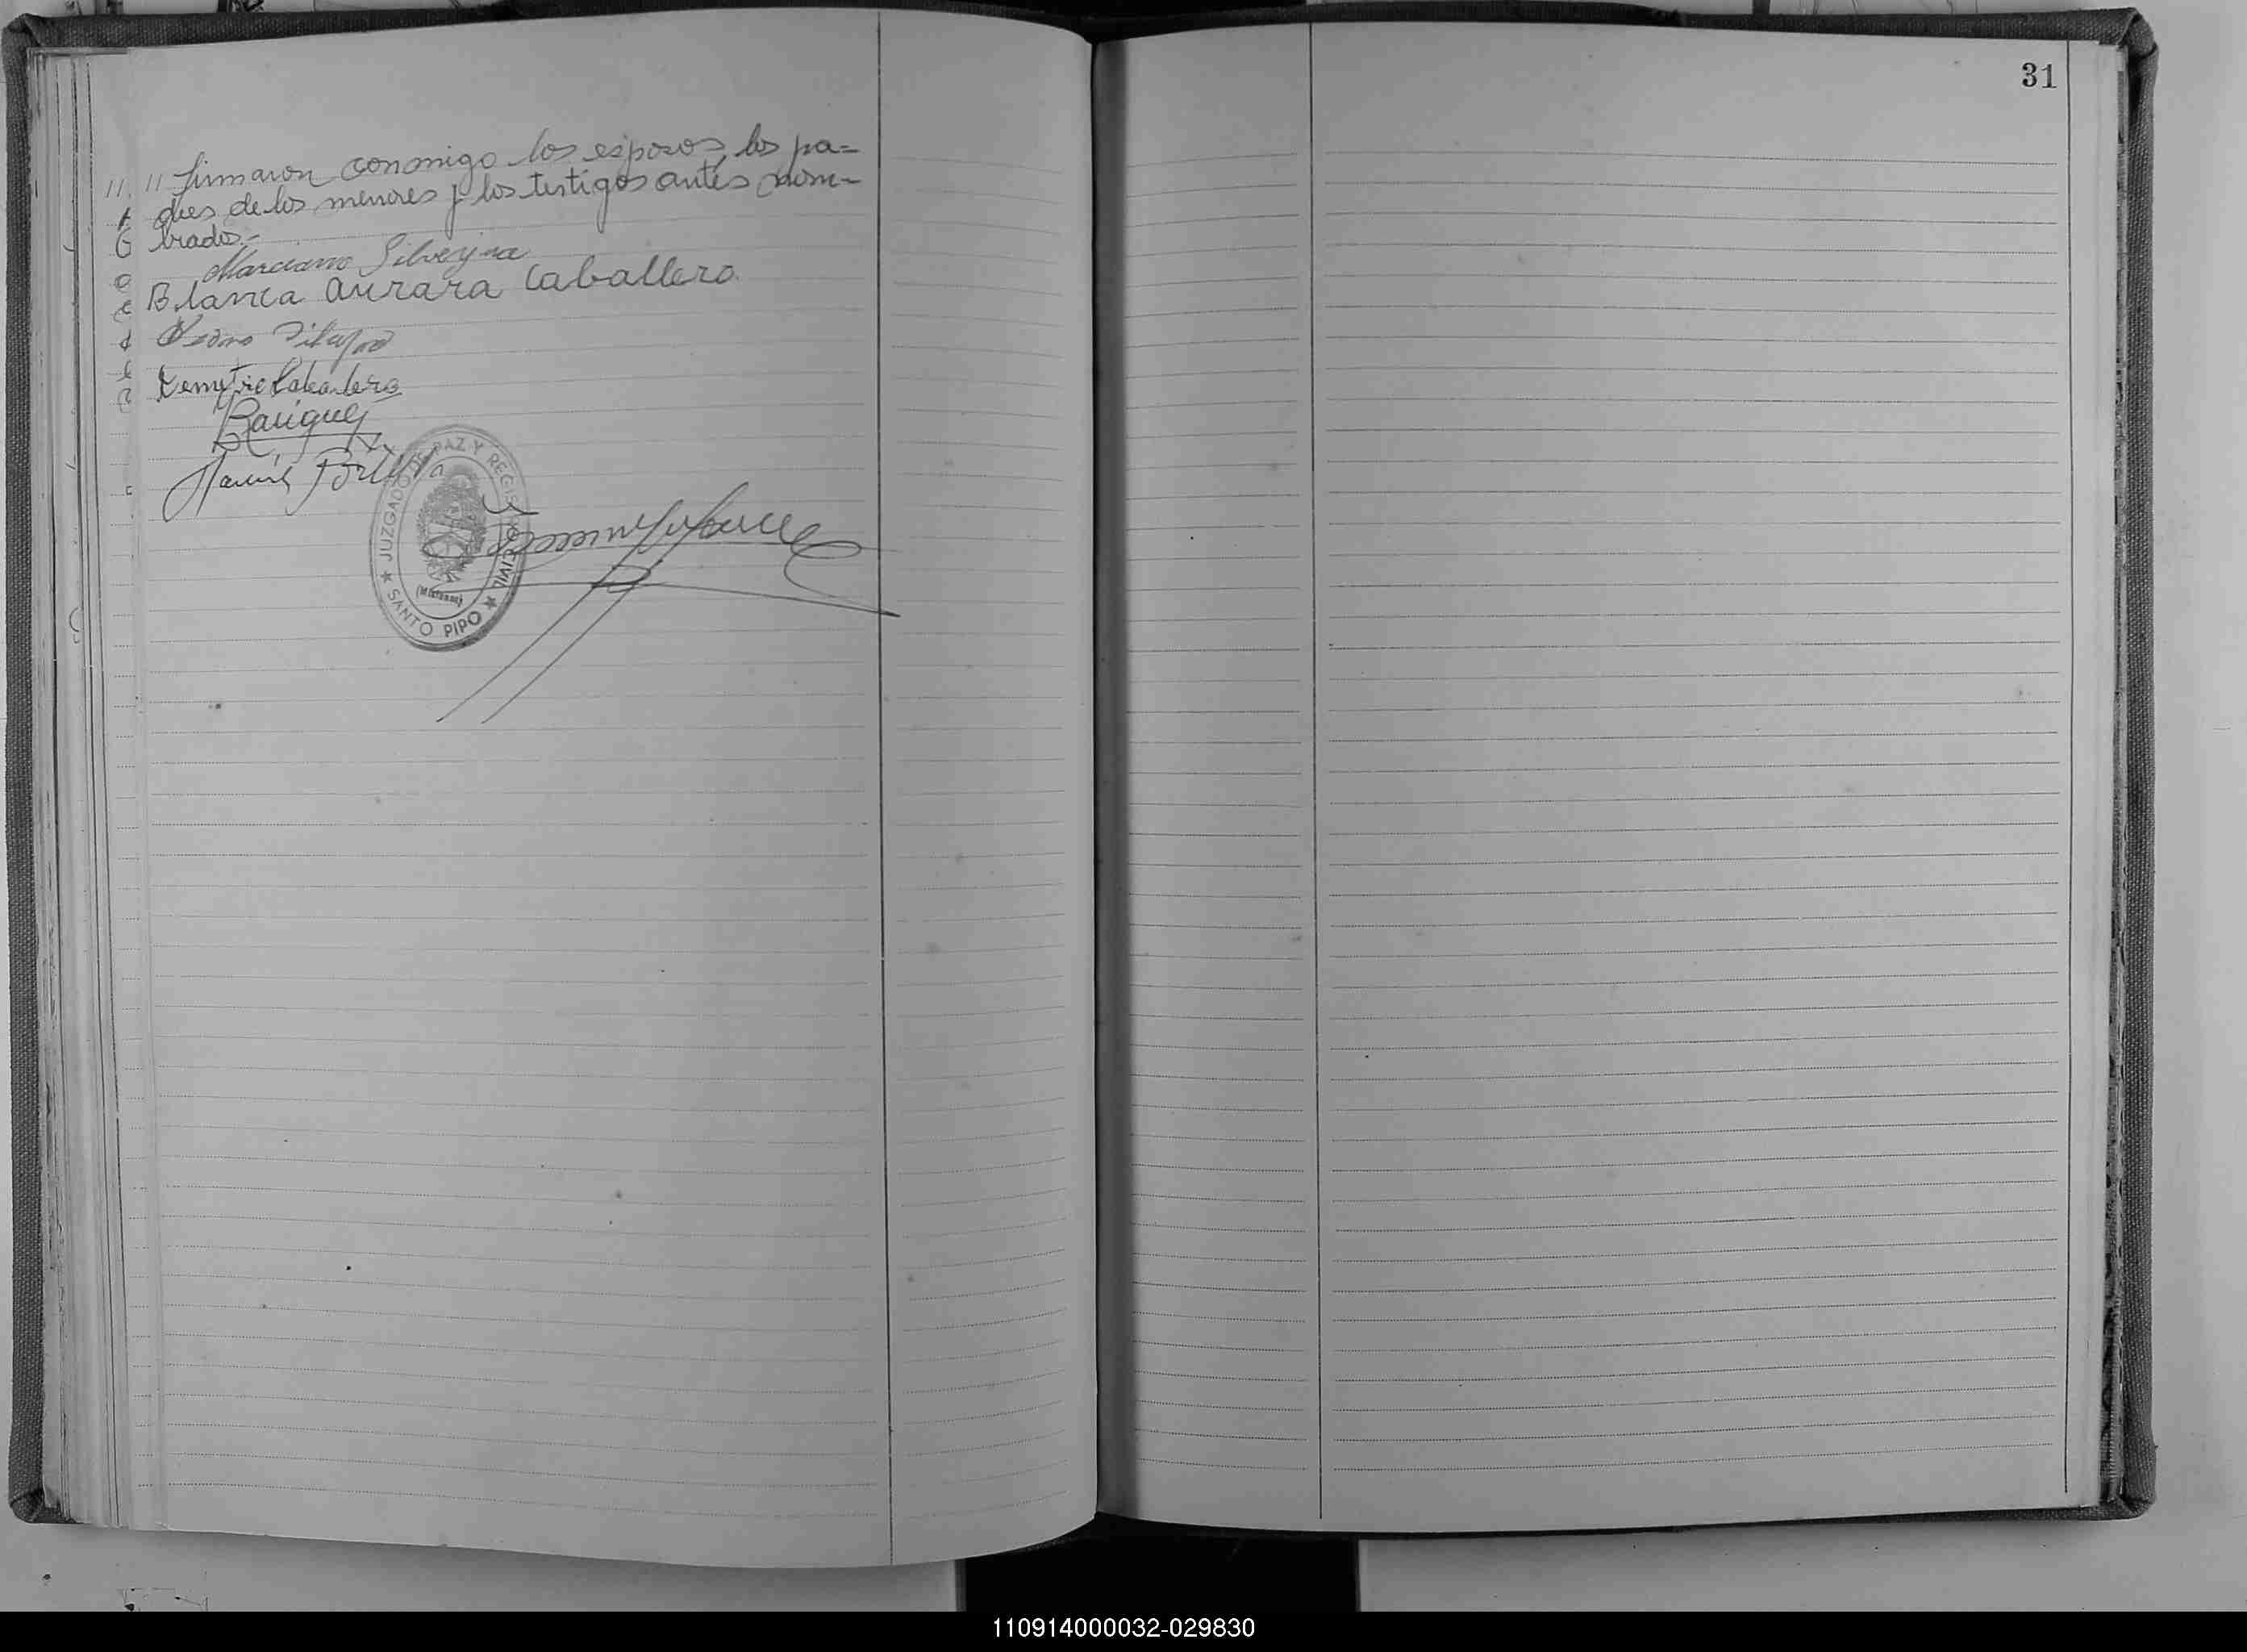 " firmaron conmigo los esposos, los pa=
dres de los menores y los testigos antes nom-
brados.-
Marciano Silveyra
Blanca Aurara Caballero
Demetrio Caballero
JUZGADO DE PAZ Y REGISTRO CIVIL
(Misiones)
SANTO PIPO
31
110914000032-029830